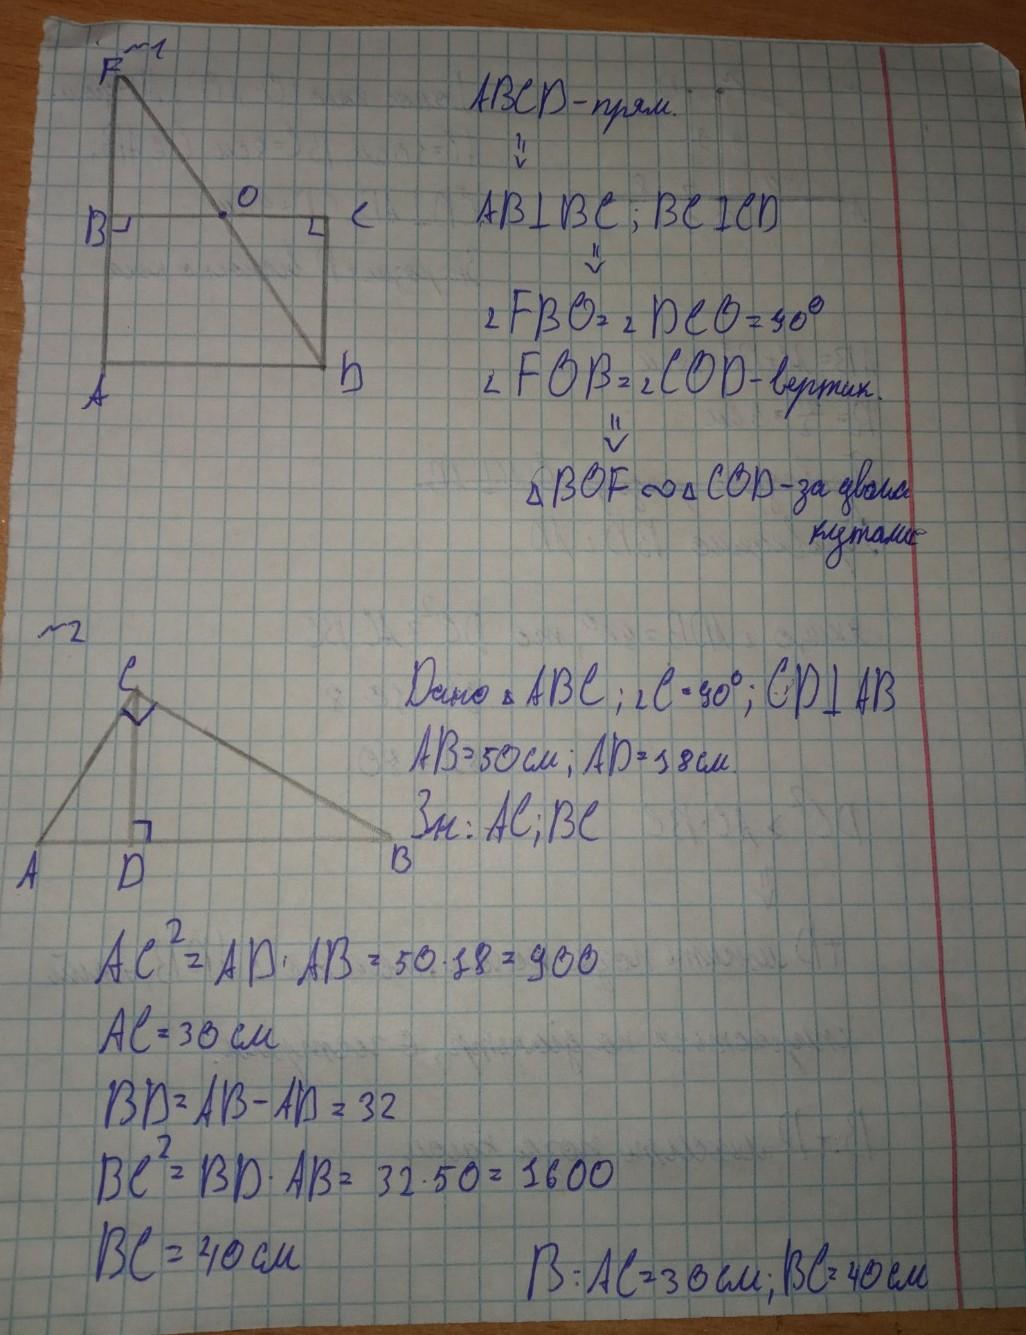 ~1
F
B
O
C
A
D
ABCD-прям.
⇓
AB⊥BC; BC⊥CD
⇓
∠FBO=∠DCO=90°
∠FOB=∠COD-вертик.
⇓
△BOF∾△COD-за двома
кутами
~2
C
A
D
B
Дано △ABC; ∠C=90°; CD⊥AB
AB=50см; AD=18см
Зн: AC; BC
AC²=AD·AB=50·18=900
AC=30см
BD=AB-AD=32
BC²=BD·AB=32·50=1600
BC=40см
В: AC=30см; BC=40см